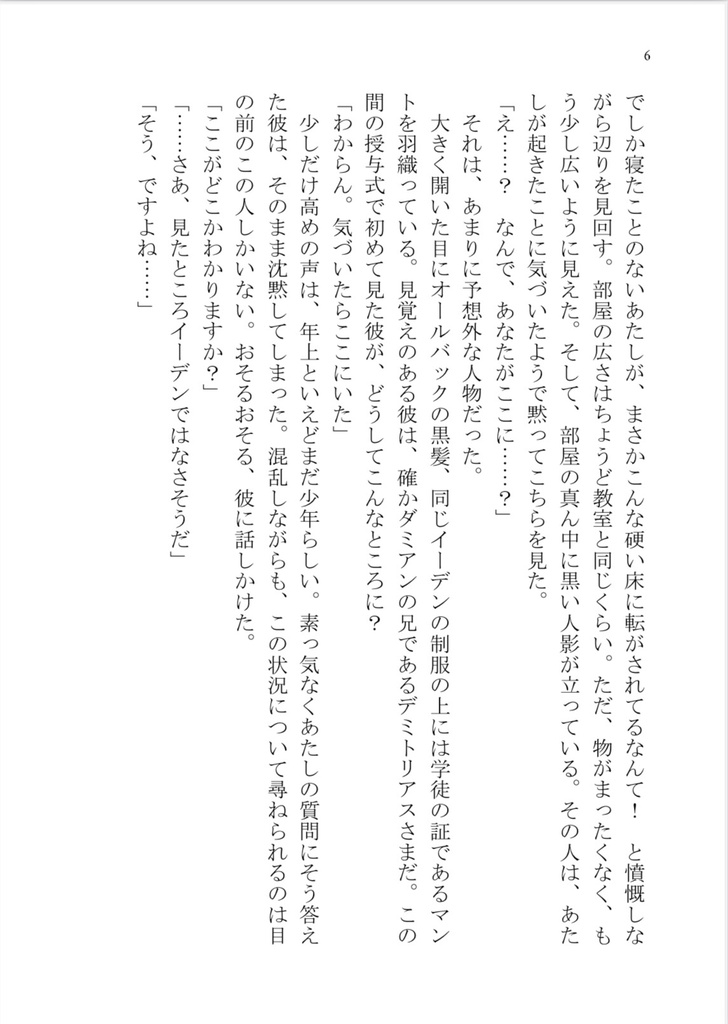 6
でしか寝たことのないあたしが、まさかこんな硬い床に転がされてるなんて！　と憤慨しな
がら辺りを見回す。部屋の広さはちょうど教室と同じくらい。ただ、物がまったくなく、も
う少し広いように見えた。そして、部屋の真ん中に黒い人影が立っている。その人は、あた
しが起きたことに気づいたようで黙ってこちらを見た。
「え……？　なんで、あなたがここに……？」
それは、あまりに予想外な人物だった。
大きく開いた目にオールバックの黒髪、同じイーデンの制服の上には学徒の証であるマン
トを羽織っている。見覚えのある彼は、確かダミアンの兄であるデミトリアスさまだ。この
間の授与式で初めて見た彼が、どうしてこんなところに？
「わからん。気づいたらここにいた」
少しだけ高めの声は、年上といえどまだ少年らしい。素っ気なくあたしの質問にそう答え
た彼は、そのまま沈黙してしまった。混乱しながらも、この状況について尋ねられるのは目
の前のこの人しかいない。おそるおそる、彼に話しかけた。
「ここがどこかわかりますか？」
「……さあ、見たところイーデンではなさそうだ」
「そう、ですよね……」